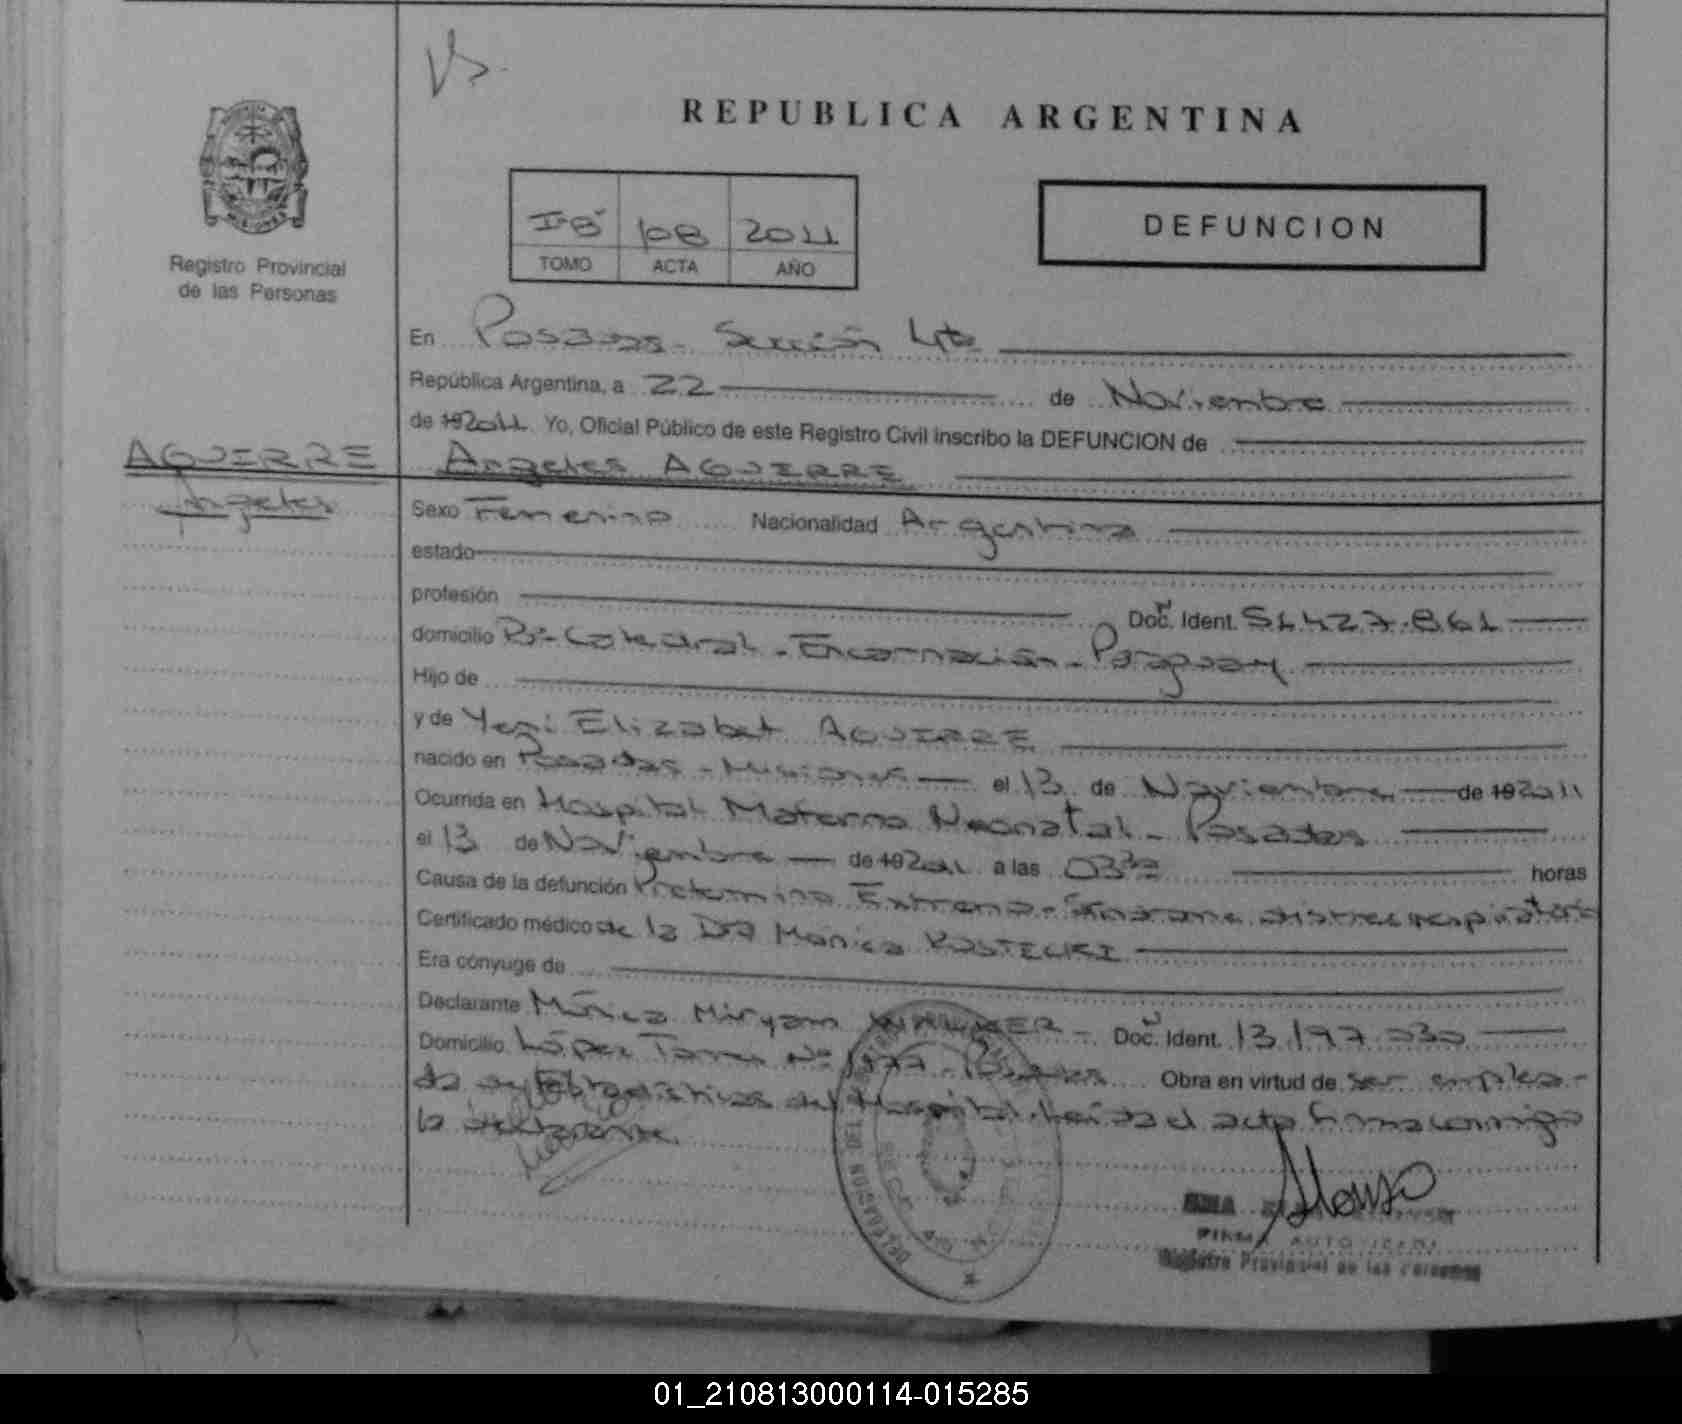 REPUBLICA ARGENTINA
I-B 108 2011
TOMO ACTA AÑO
DEFUNCION
Registro Provincial
de las Personas
En Posadas - Sección 4ta
República Argentina, a 22 de Noviembre
de 192011 Yo, Oficial Público de este Registro Civil inscribo la DEFUNCION de
AGUIRRE
Angeles
Angeles AGUIRRE
Sexo Femenino Nacionalidad Argentina
estado
profesión Doc. Ident. 51.427.861
domicilio Bº Catedral - Encarnación - Paraguay
Hijo de
y de Yeni Elizabet AGUIRRE
nacido en Posadas - Misiones el 13 de Noviembre de 192011
Ocurrida en Hospital Materno Neonatal - Posadas
el 13 de Noviembre de 192011 a las 03 horas
Causa de la defunción Pretermino Extremo - Sindrome distres respiratorio
Certificado médico de la Dra Monica KOSTECKI
Era cónyuge de
Declarante Mónica Miryam Doc. Ident. 13.197.030
Domicilio López Torres Nº Posadas Obra en virtud de ser emplea-
da de Estadisticas del Hospital. Leída el acta firma conmigo
la declarante.
DELEGACION
FIRMA AUTORIZADA
Registro Provincial de las Personas
01_210813000114-015285